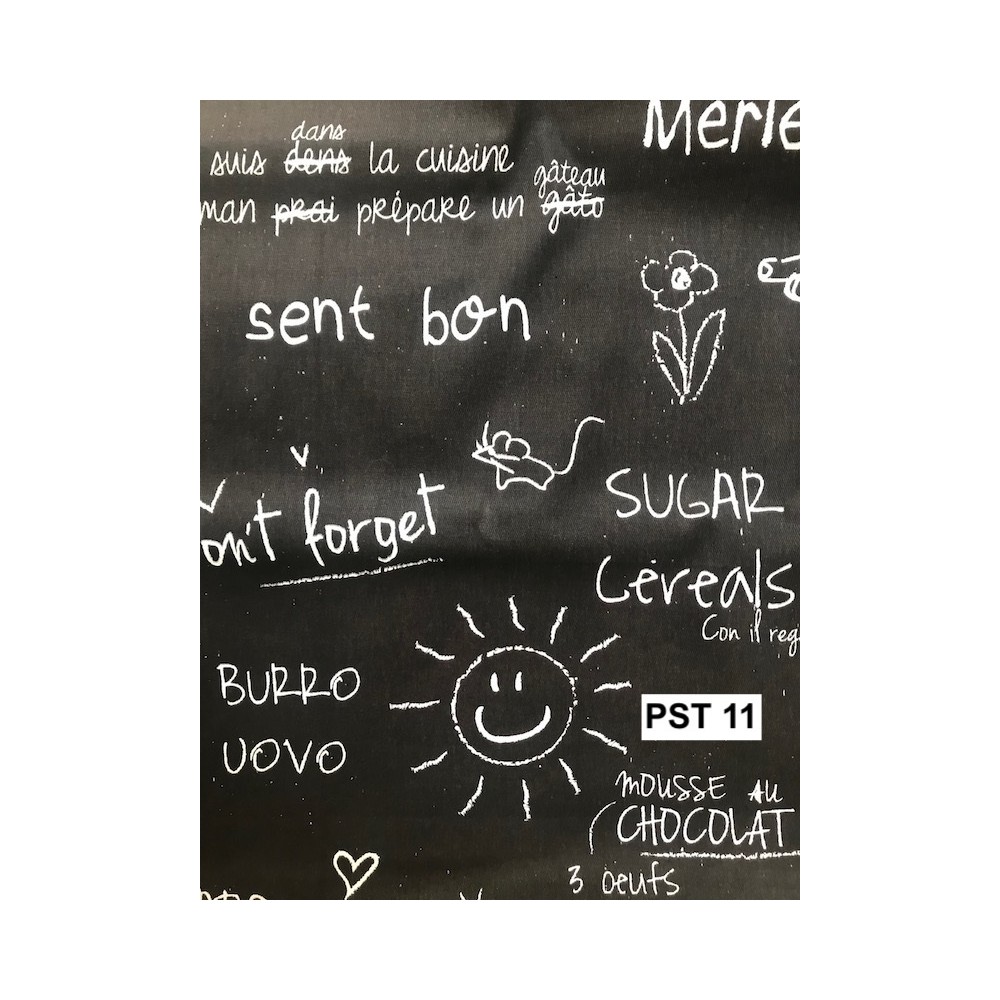 Merle
dans
suis dens la cuisine
gâteau
man prai prépare un gâto
sent bon
on't forget
SUGAR
Cereals
Con il reg
BURRO
UOVO
PST 11
MOUSSE AU
CHOCOLAT
3 oeufs